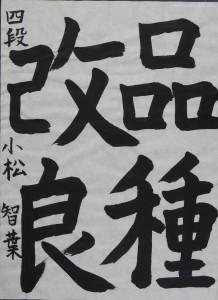 品種
改良
四段 小松 智葉